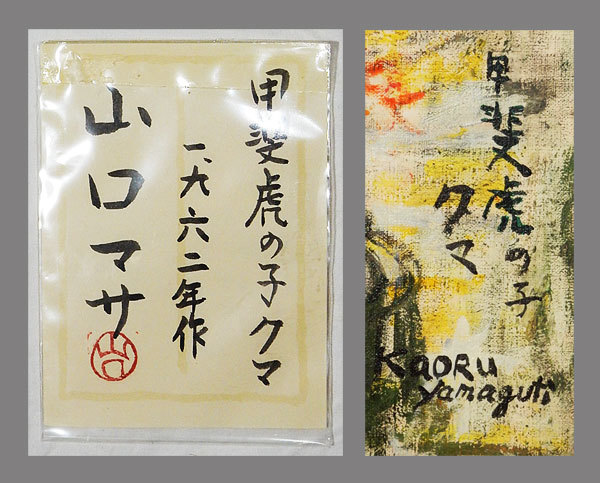 甲斐虎の子クマ
一九六二年作
山口マサ
甲斐虎の子
クマ
KAORU
yamaguti